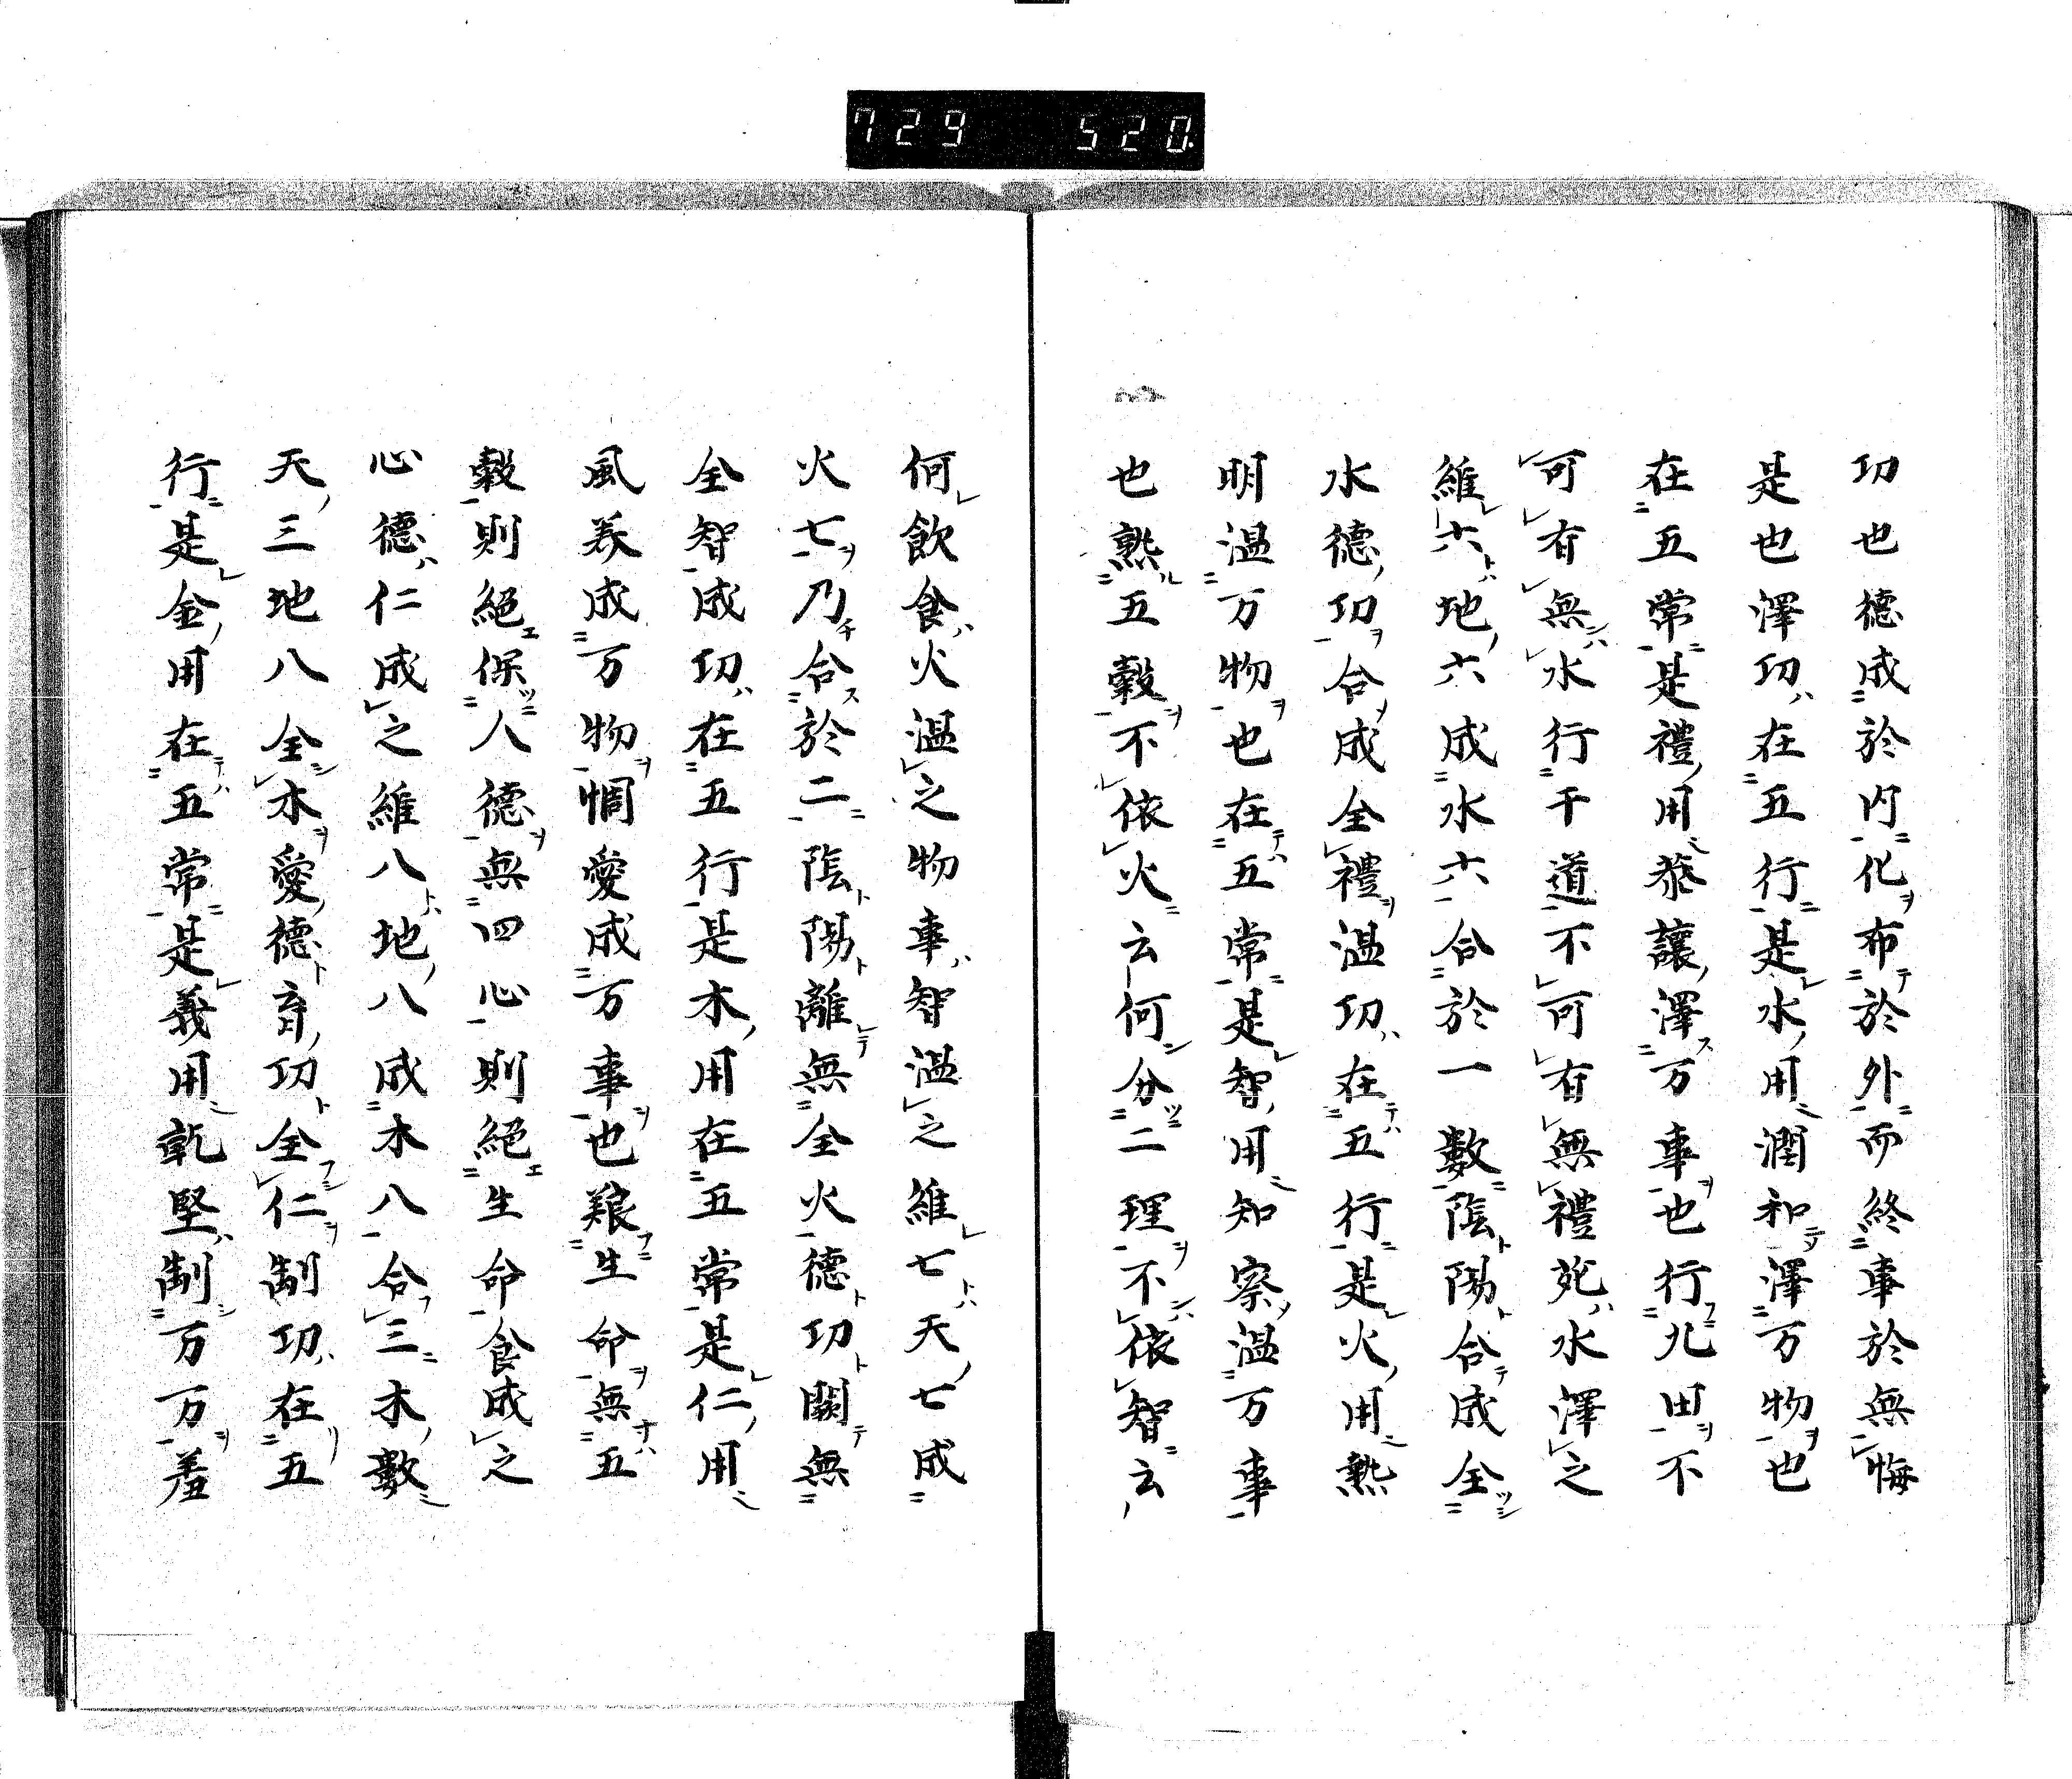 729 520.
功也德成於内化布於外而終事於無悔
是也澤功在五行是水用潤和澤万物也
在五常是禮用恭讓澤万事也行九田不
可有無水行干道不可有無禮死水澤之
維六地六成水六合於一數陰陽合成全
水德功合成全禮温功在五行是火用熱
明温万物也在五常是智用知察温万事
也熟五穀不依火云何分二理不依智云
何飲食火温之物事智温之維七天七成
火七乃合於二陰陽離無全火德功闕無
全智成功在五行是木用在五常是仁用
風養成万物惆愛成万事也艱生命無五
穀則絕保人德無四心則絕生命食成之
心德仁成之維八地八成木八合三木數
天三地八全木愛德育功全仁制功在五
行是金用在五常是義用乾堅制万万差